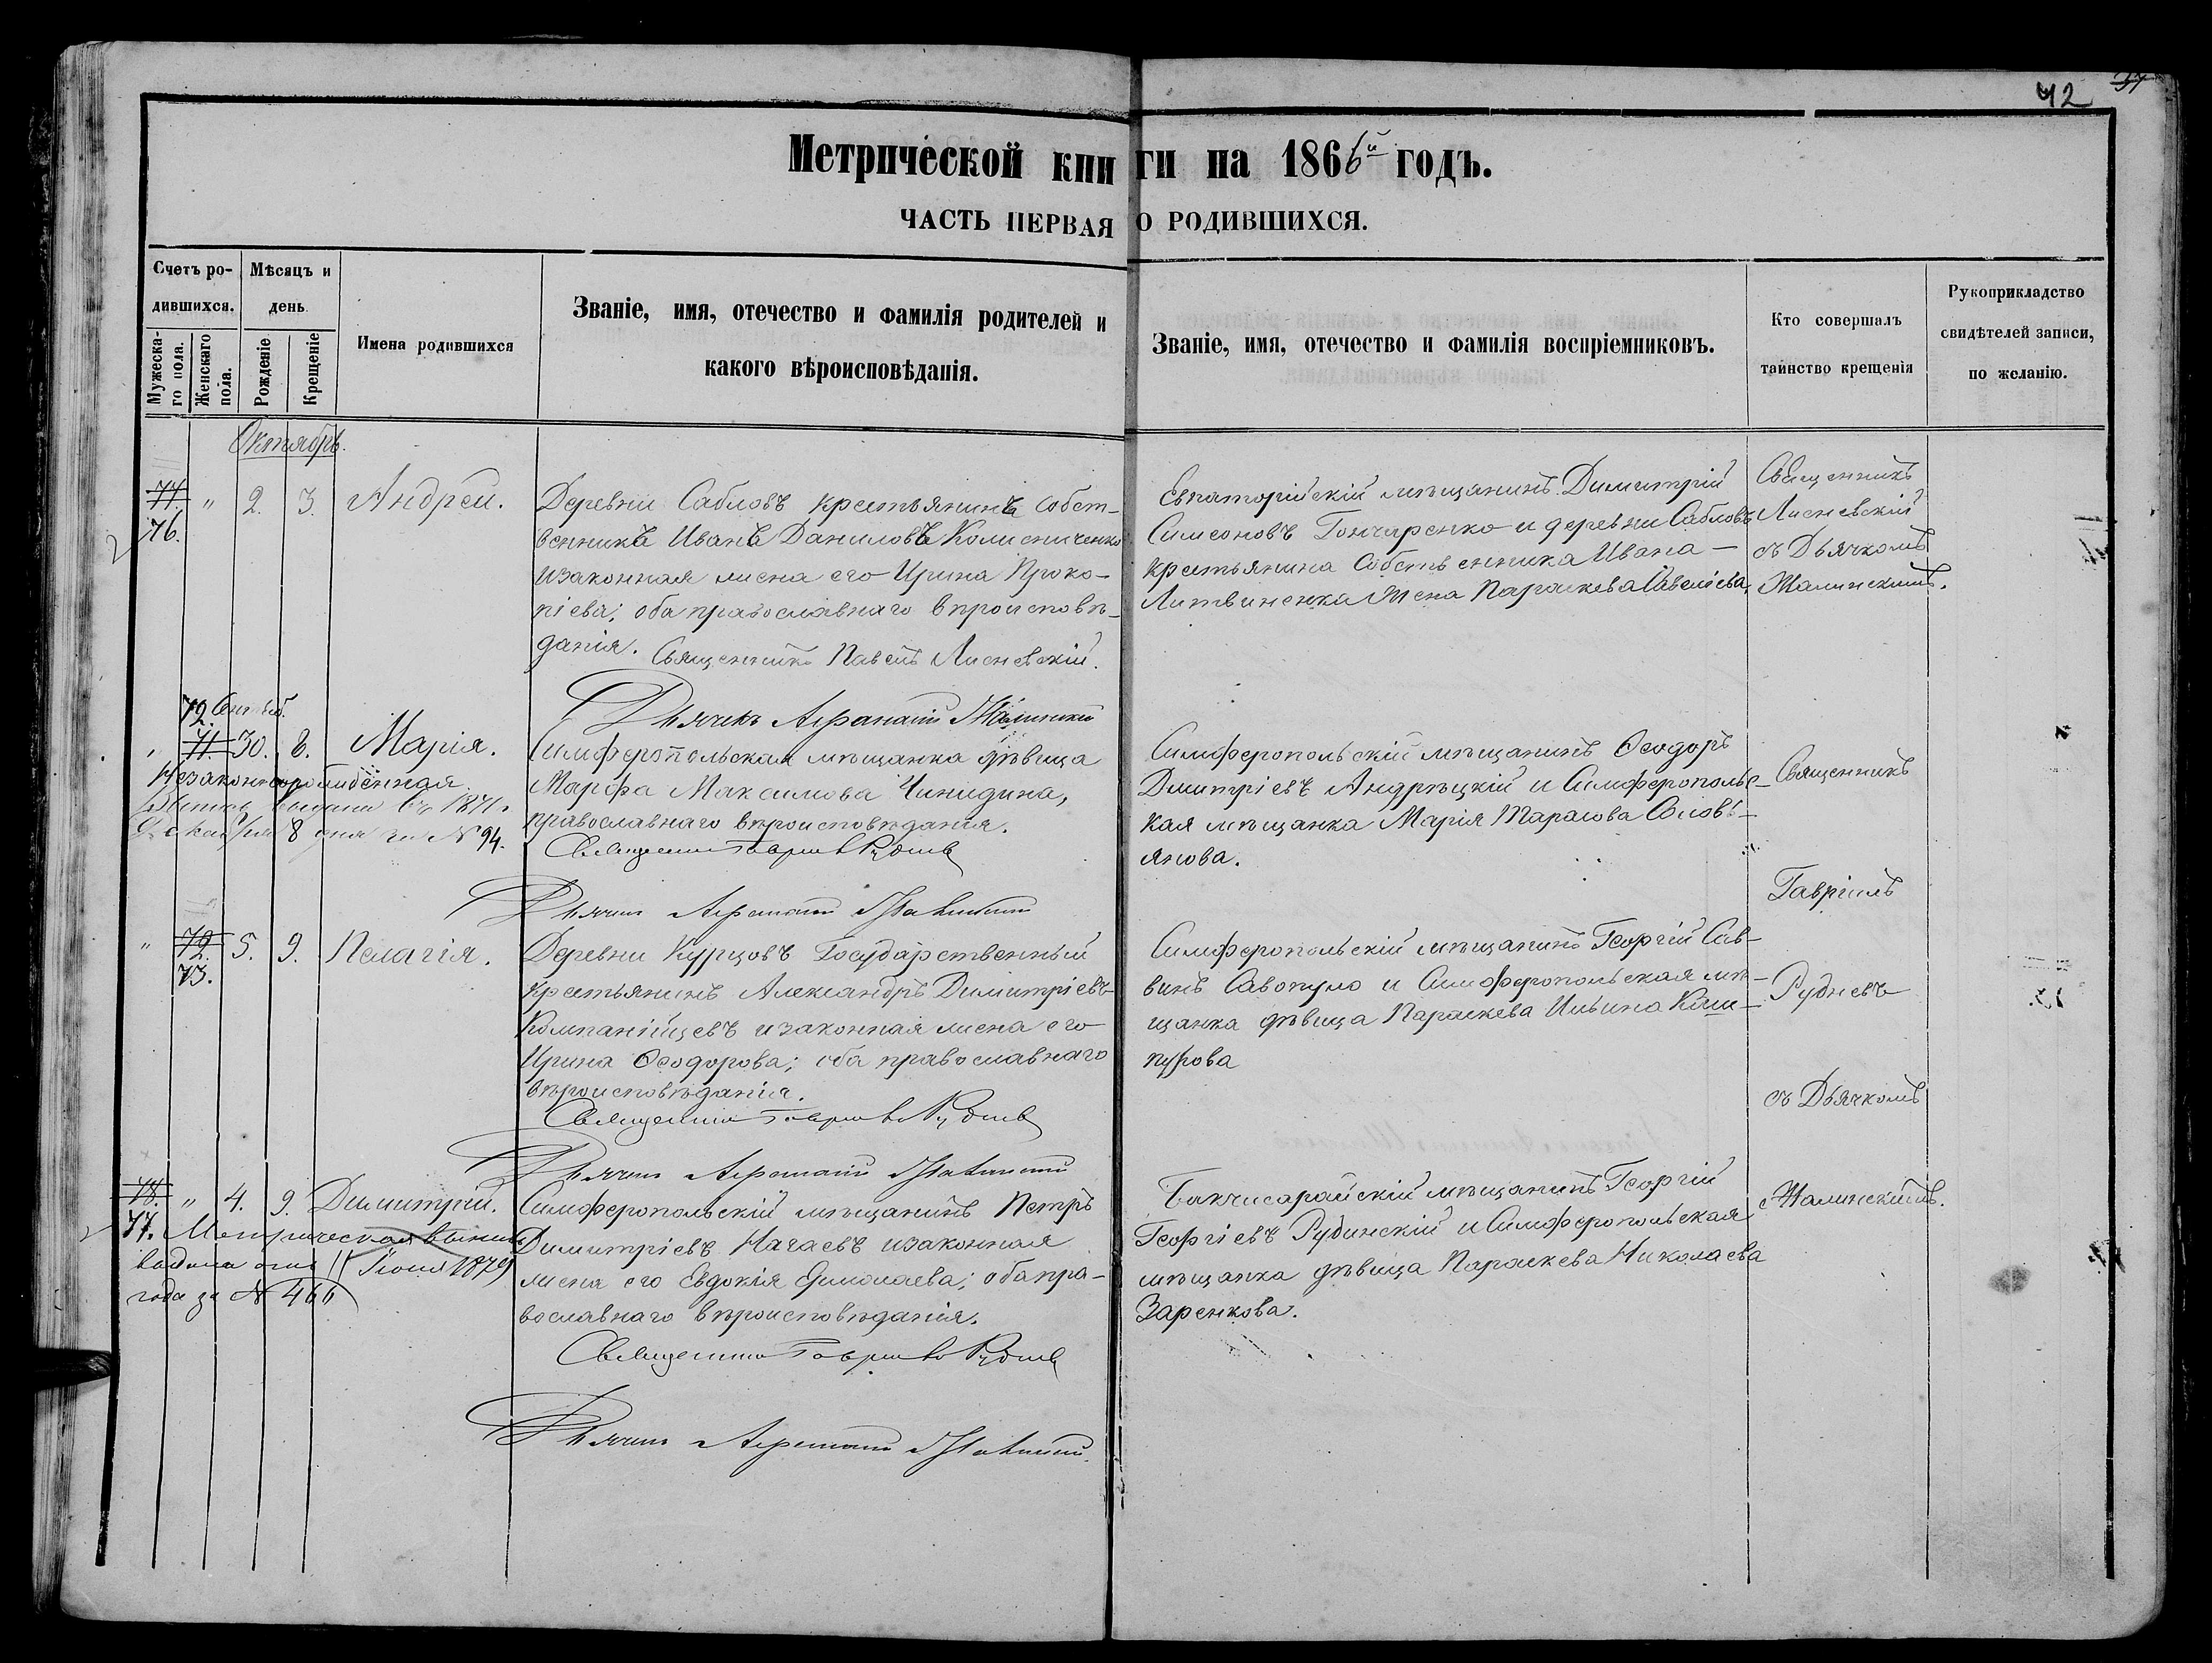 42 37
Метрической книги на 1866й годъ.
ЧАСТЬ ПЕРВАЯ О РОДИВШИХСЯ.
Счетъ родившихся.
Мужескаго пола.
Женскаго пола.
Мѣсяцъ и день.
Рожденіе
Крещеніе
Имена родившихся
Званіе, имя, отечество и фамилія родителей и
какого вѣроисповѣданія.
Званіе, имя, отечество и фамилія воспріемниковъ.
Кто совершалъ
таинство крещенія
Рукоприкладство
свидѣтелей записи,
по желанію.
Октябрь.
77. " 2. 3. Андрей.
76.
Деревни Сабловъ крестьянинъ собст-
венникъ Иванъ Даниловъ Колисниченко
и законная жена его Ирина Проко-
піева; оба православнаго вѣроисповѣ-
данія. Священникъ Павелъ Лисневскій.
Дьячекъ Афанасій Жалинскій
Евпаторійскій мѣщанинъ Димитрій
Симеоновъ Гончаренко и деревни Сабловъ
крестьянина собственника Ивана
Литвиненка жена Параскева Савеліева.
Священникъ
Лисневскій
съ Дьячкомъ
Жалинскимъ.
72. Сентяб.
" 71. 30. 8. Марія.
Незаконнорожденная
выдана въ 1871.
Декабря 8 дня за № 94.
Симферопольская мѣщанка дѣвица
Марфа Максимова Чинидина,
православнаго вѣроисповѣданія.
Священникъ Гавріилъ Рудневъ
Дьячекъ Афанасій Жалинскій
Симферопольскій мѣщанинъ Ѳеодоръ
Димитріевъ Андрѣцкій и Симферопольс-
кая мѣщанка Марія Тарасова Солов-
янова.
Священникъ
Гавріилъ
Рудневъ
съ Дьячкомъ
Жалинскимъ.
" 72. 5. 9. Пелагія.
73.
Деревни Курцовъ Государственный
крестьянинъ Александръ Димитріевъ
Компанійцевъ и законная жена его
Ирина Ѳеодорова; оба православнаго
вѣроисповѣданія.
Священникъ Гавріилъ Рудневъ
Дьячекъ Афанасій Жалинскій
Симферопольскій мѣщанинъ Георгій Сав-
винъ Савопуло и Симферопольская мѣ-
щанка дѣвица Параскева Ильина Каш-
пурова
78. " 4. 9. Димитрій.
77. Метрическая выпись
выдана 11 Іюня 1879
года за № 466
Симферопольскій мѣщанинъ Петръ
Димитріевъ Нагаевъ и законная
жена его Евдокія Ермолаева; оба пра-
вославнаго вѣроисповѣданія.
Священникъ Гавріилъ Рудневъ
Дьячекъ Афанасій Жалинскій.
Бакчисарайскій мѣщанинъ Георгій
Георгіевъ Рудинскій и Симферопольская
мѣщанка дѣвица Параскева Николаева
Заренкова.